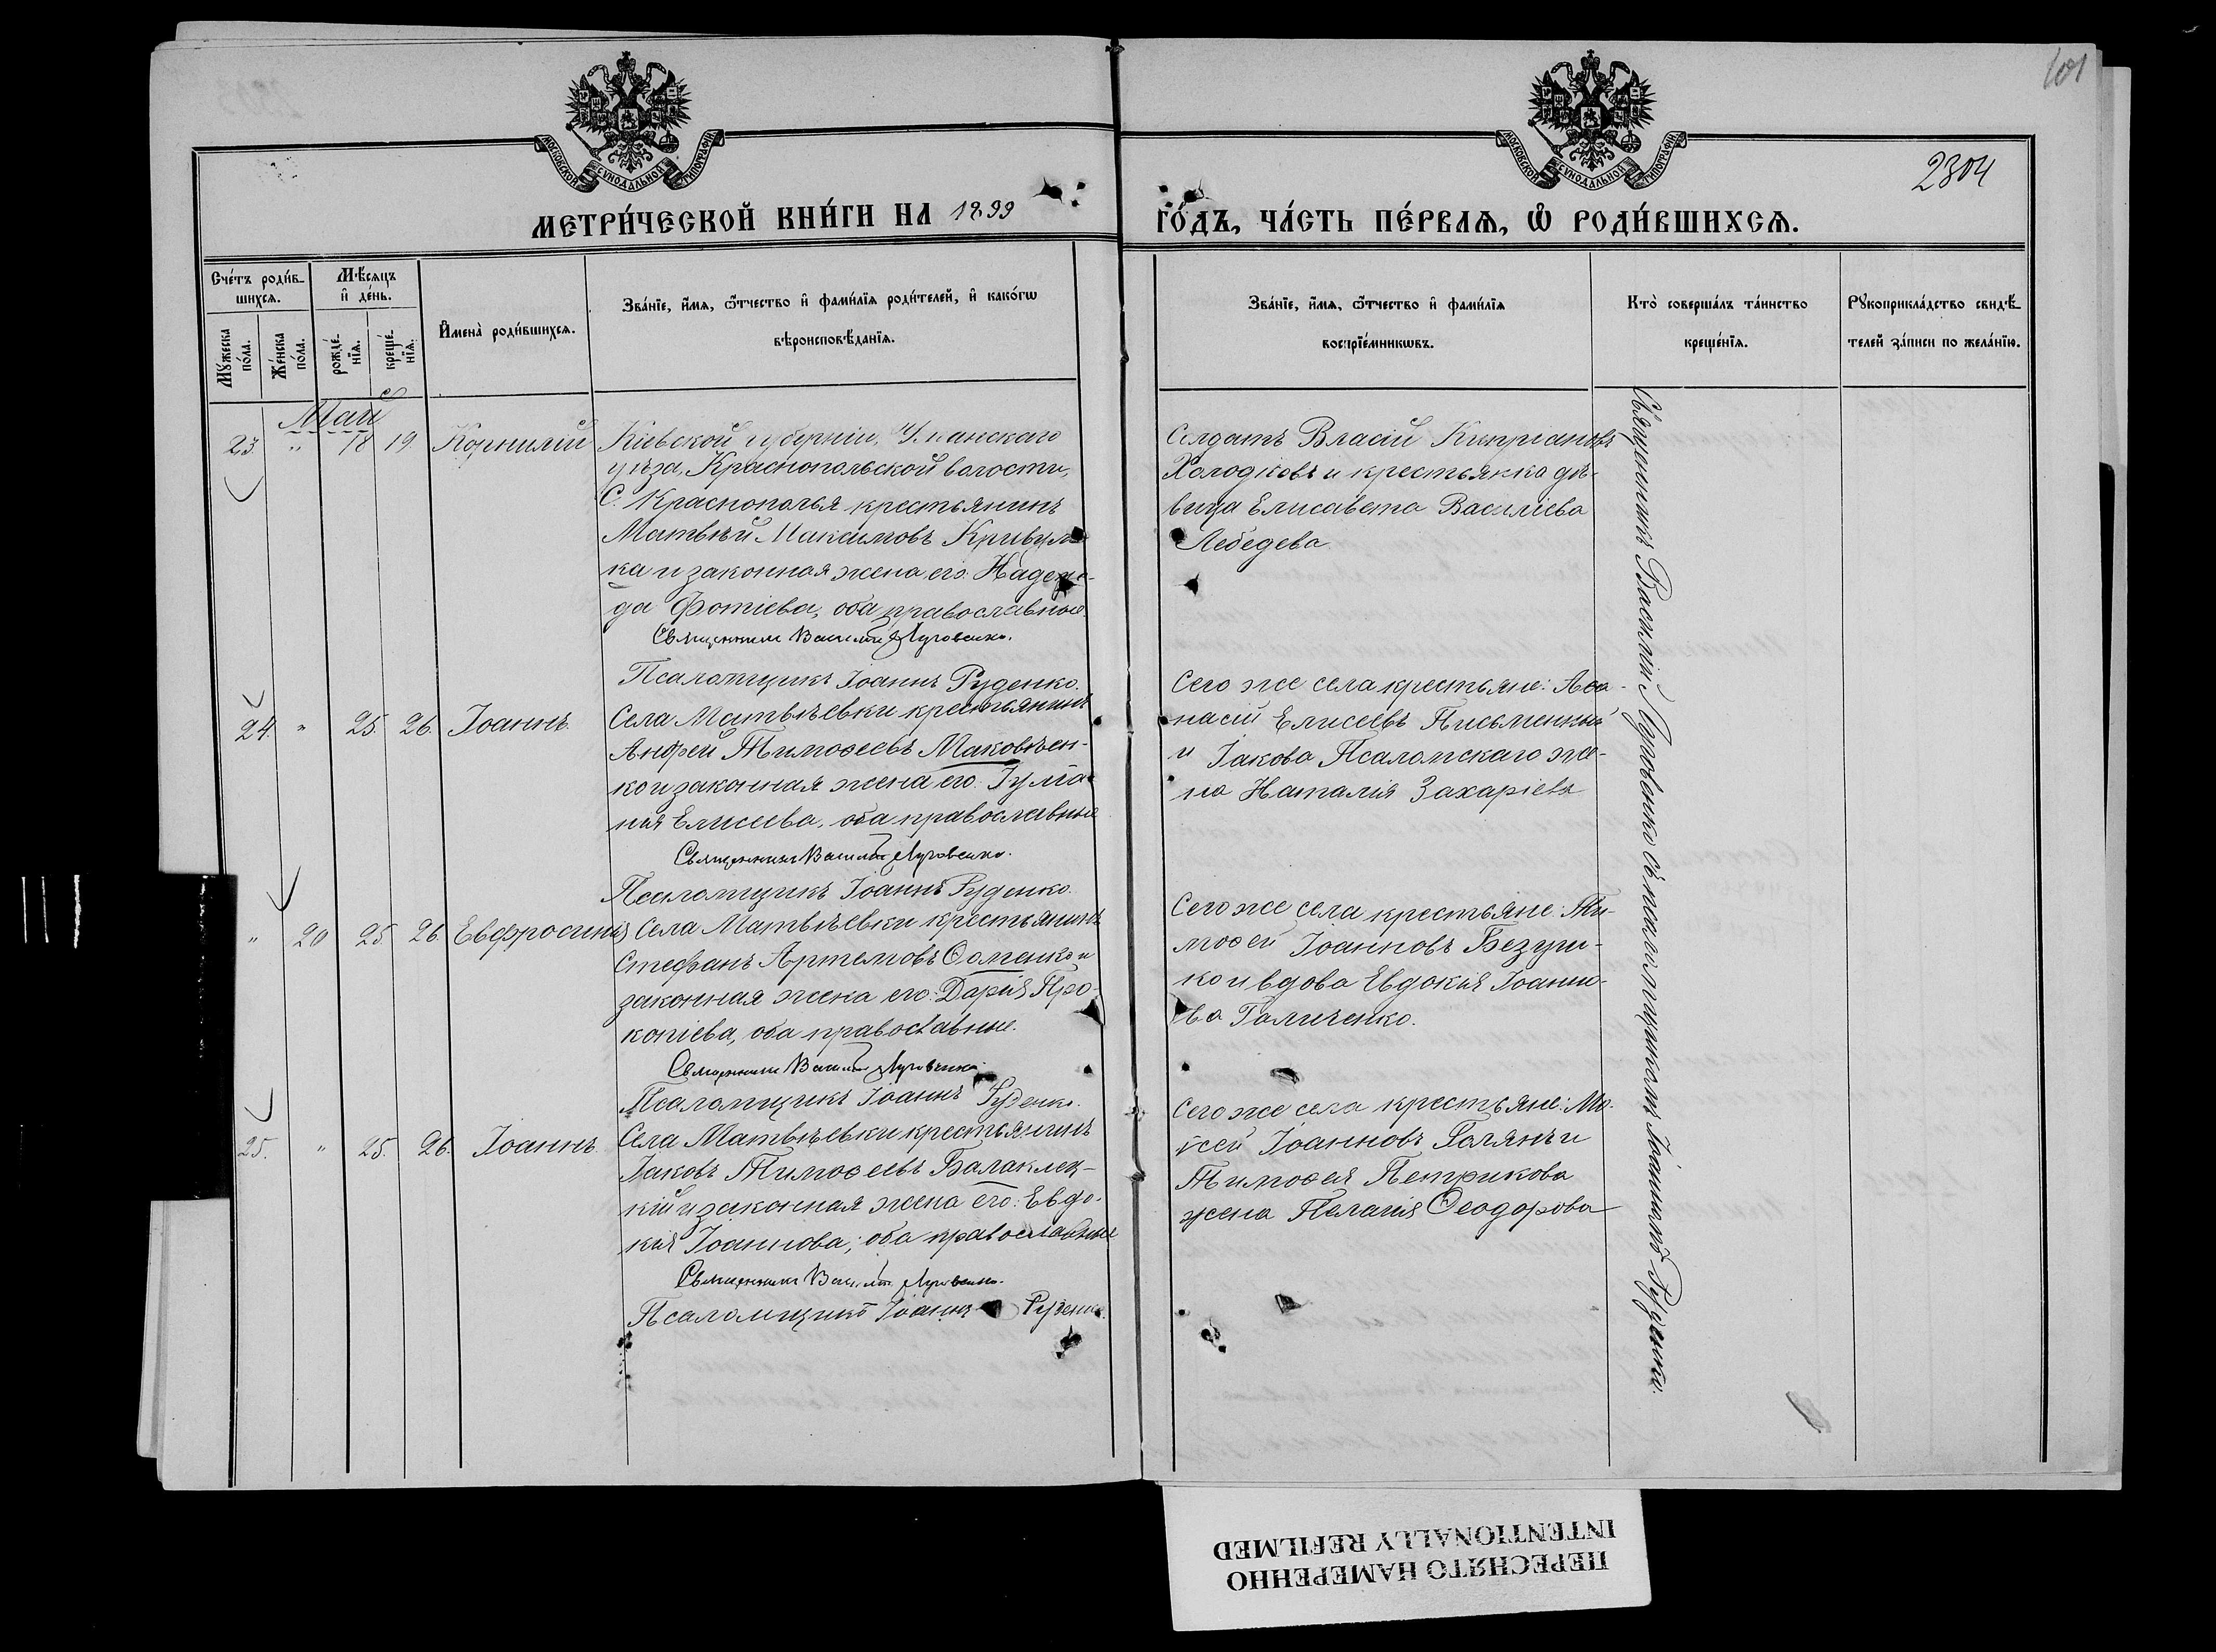 101
2304
МОСКОВСКОЙ СѴНОДАЛЬНОЙ ТИПОГРАФІИ
МОСКОВСКОЙ СѴНОДАЛЬНОЙ ТИПОГРАФІИ
МЕТРИ́ЧЕСКОЙ КНИ́ГИ НА 1899
ГО́ДЪ, ЧА́СТЬ ПЕ́РВАѦ, Ѽ РОДИ́ВШИХСѦ.
Сче́тъ роди́в-
шихсѧ.
Мꙋжеска по́ла.
Же́нска по́ла.
Мѣ́сѧцъ
и҆ де́нь.
рожде́-
нїѧ.
креще́-
нїѧ.
И҆мена̀ роди́вшихсѧ.
Зва́нїе, и҆́мѧ, ѻ҆́тчество и҆ фами́лїѧ роди́телей, и҆ како́гѡ
вѣроисповѣ́данїѧ.
Зва́нїе, и҆́мѧ, ѻ҆́тчество и҆ фами́лїѧ
воспрїе́мникѡвъ.
Кто̀ соверша́лъ та́инство
креще́нїѧ.
Рꙋкоприкла́дство свидѣ́-
телей за́писи по жела́нїю.
Май
23. " 18 19. Корнилій
Кіевской губерніи, Уманскаго
уѣзда, Краснопольской волости,
С. Краснополья крестьянинъ
Матвѣй Максимовъ Кривуль
ка и законная жена его: Надеж-
да Фотіева, оба православные.
Священникъ Василій Луговенко.
Псаломщикъ Іоаннъ Руденко.
Солдатъ Власій Кипріановъ
Холодковъ и крестьянка дѣ-
вица Елисавета Василіева
Лебедева
24. " 25. 26. Іоаннъ.
Села Матвѣевки крестьянинъ
Андрей Тимоѳеевъ Маковѣен-
ко и законная жена его: Іулiа
нія Елисеева, оба православные
Священникъ Василій Луговенко.
Псаломщикъ Іоаннъ Руденко.
Сего же села крестьяне: Аѳа-
насій Елисеевъ Письменный
и Іакова Псаломскаго же-
на Наталія Захаріева
" 20 25. 26. Евфросинія
Села Матвѣевки крестьянинъ
Стефанъ Артемовъ Ѳоменко и
законная жена его: Дарія Про-
копіева, оба православные.
Священникъ Василій Луговенко
Псаломщикъ Іоаннъ Руденко.
Сего же села крестьяне: Ти-
моѳей Іоанновъ Безуг-
ко и вдова Евдокія Іоанно-
ва Галиченко.
25. " 25. 26. Іоаннъ.
Села Матвѣевки крестьянинъ
Іаковъ Тимоѳеевъ Балаклец-
кій и законная жена его: Евдо-
кія Іоаннова; оба православные
Священникъ Василій Луговенко.
Псаломщикъ Іоаннъ Руденко.
Сего же села крестьяне: Мо-
ѵсей Іоанновъ Голянъ и
Тимоѳея Петрикова
жена Пелагія Ѳеодорова
Священникъ Василій Луговенко съ псаломщикомъ Іоанномъ Руденко.
ПЕРЕСНЯТО НАМЕРЕННО
INTENTIONALLY REFILMED